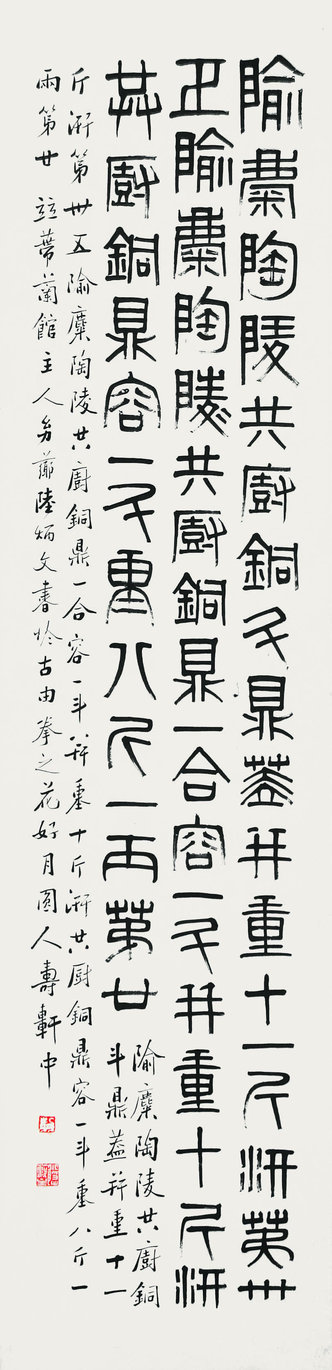 隃麋陶陵共廚銅斗鼎蓋并重十一斤汧第卅
五隃麋陶陵共廚銅鼎一合容一斗并重十斤汧
共廚銅鼎容一斗重八斤一兩第廿
隃麋陶陵共廚銅
斗鼎蓋并重十一
斤汧第卅五隃麋陶陵共廚銅鼎一合容一斗并重十斤汧共廚銅鼎容一斗重八斤一
兩第廿 主人 陸 文書於古由拳之花好月圓人壽軒中